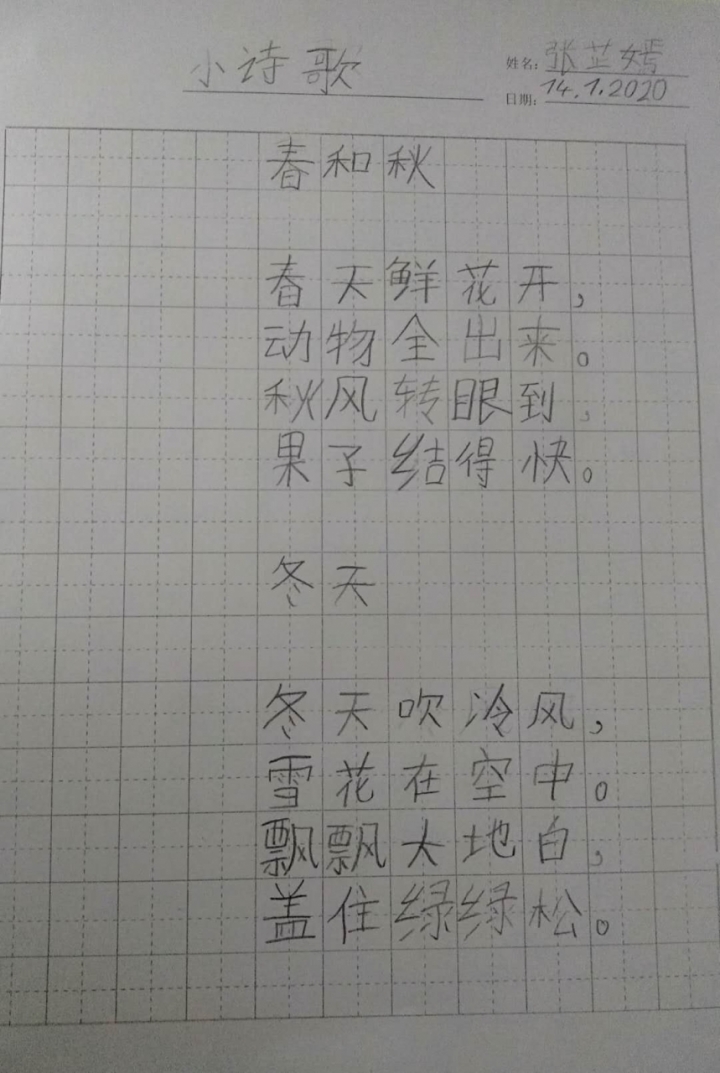 小诗歌
姓名：张芷嫣
日期：14.1.2020
春和秋
春天鲜花开，
动物全出来。
秋风转眼到，
果子结得快。
冬天
冬天吹冷风，
雪花在空中。
飘飘大地白，
盖住绿绿松。